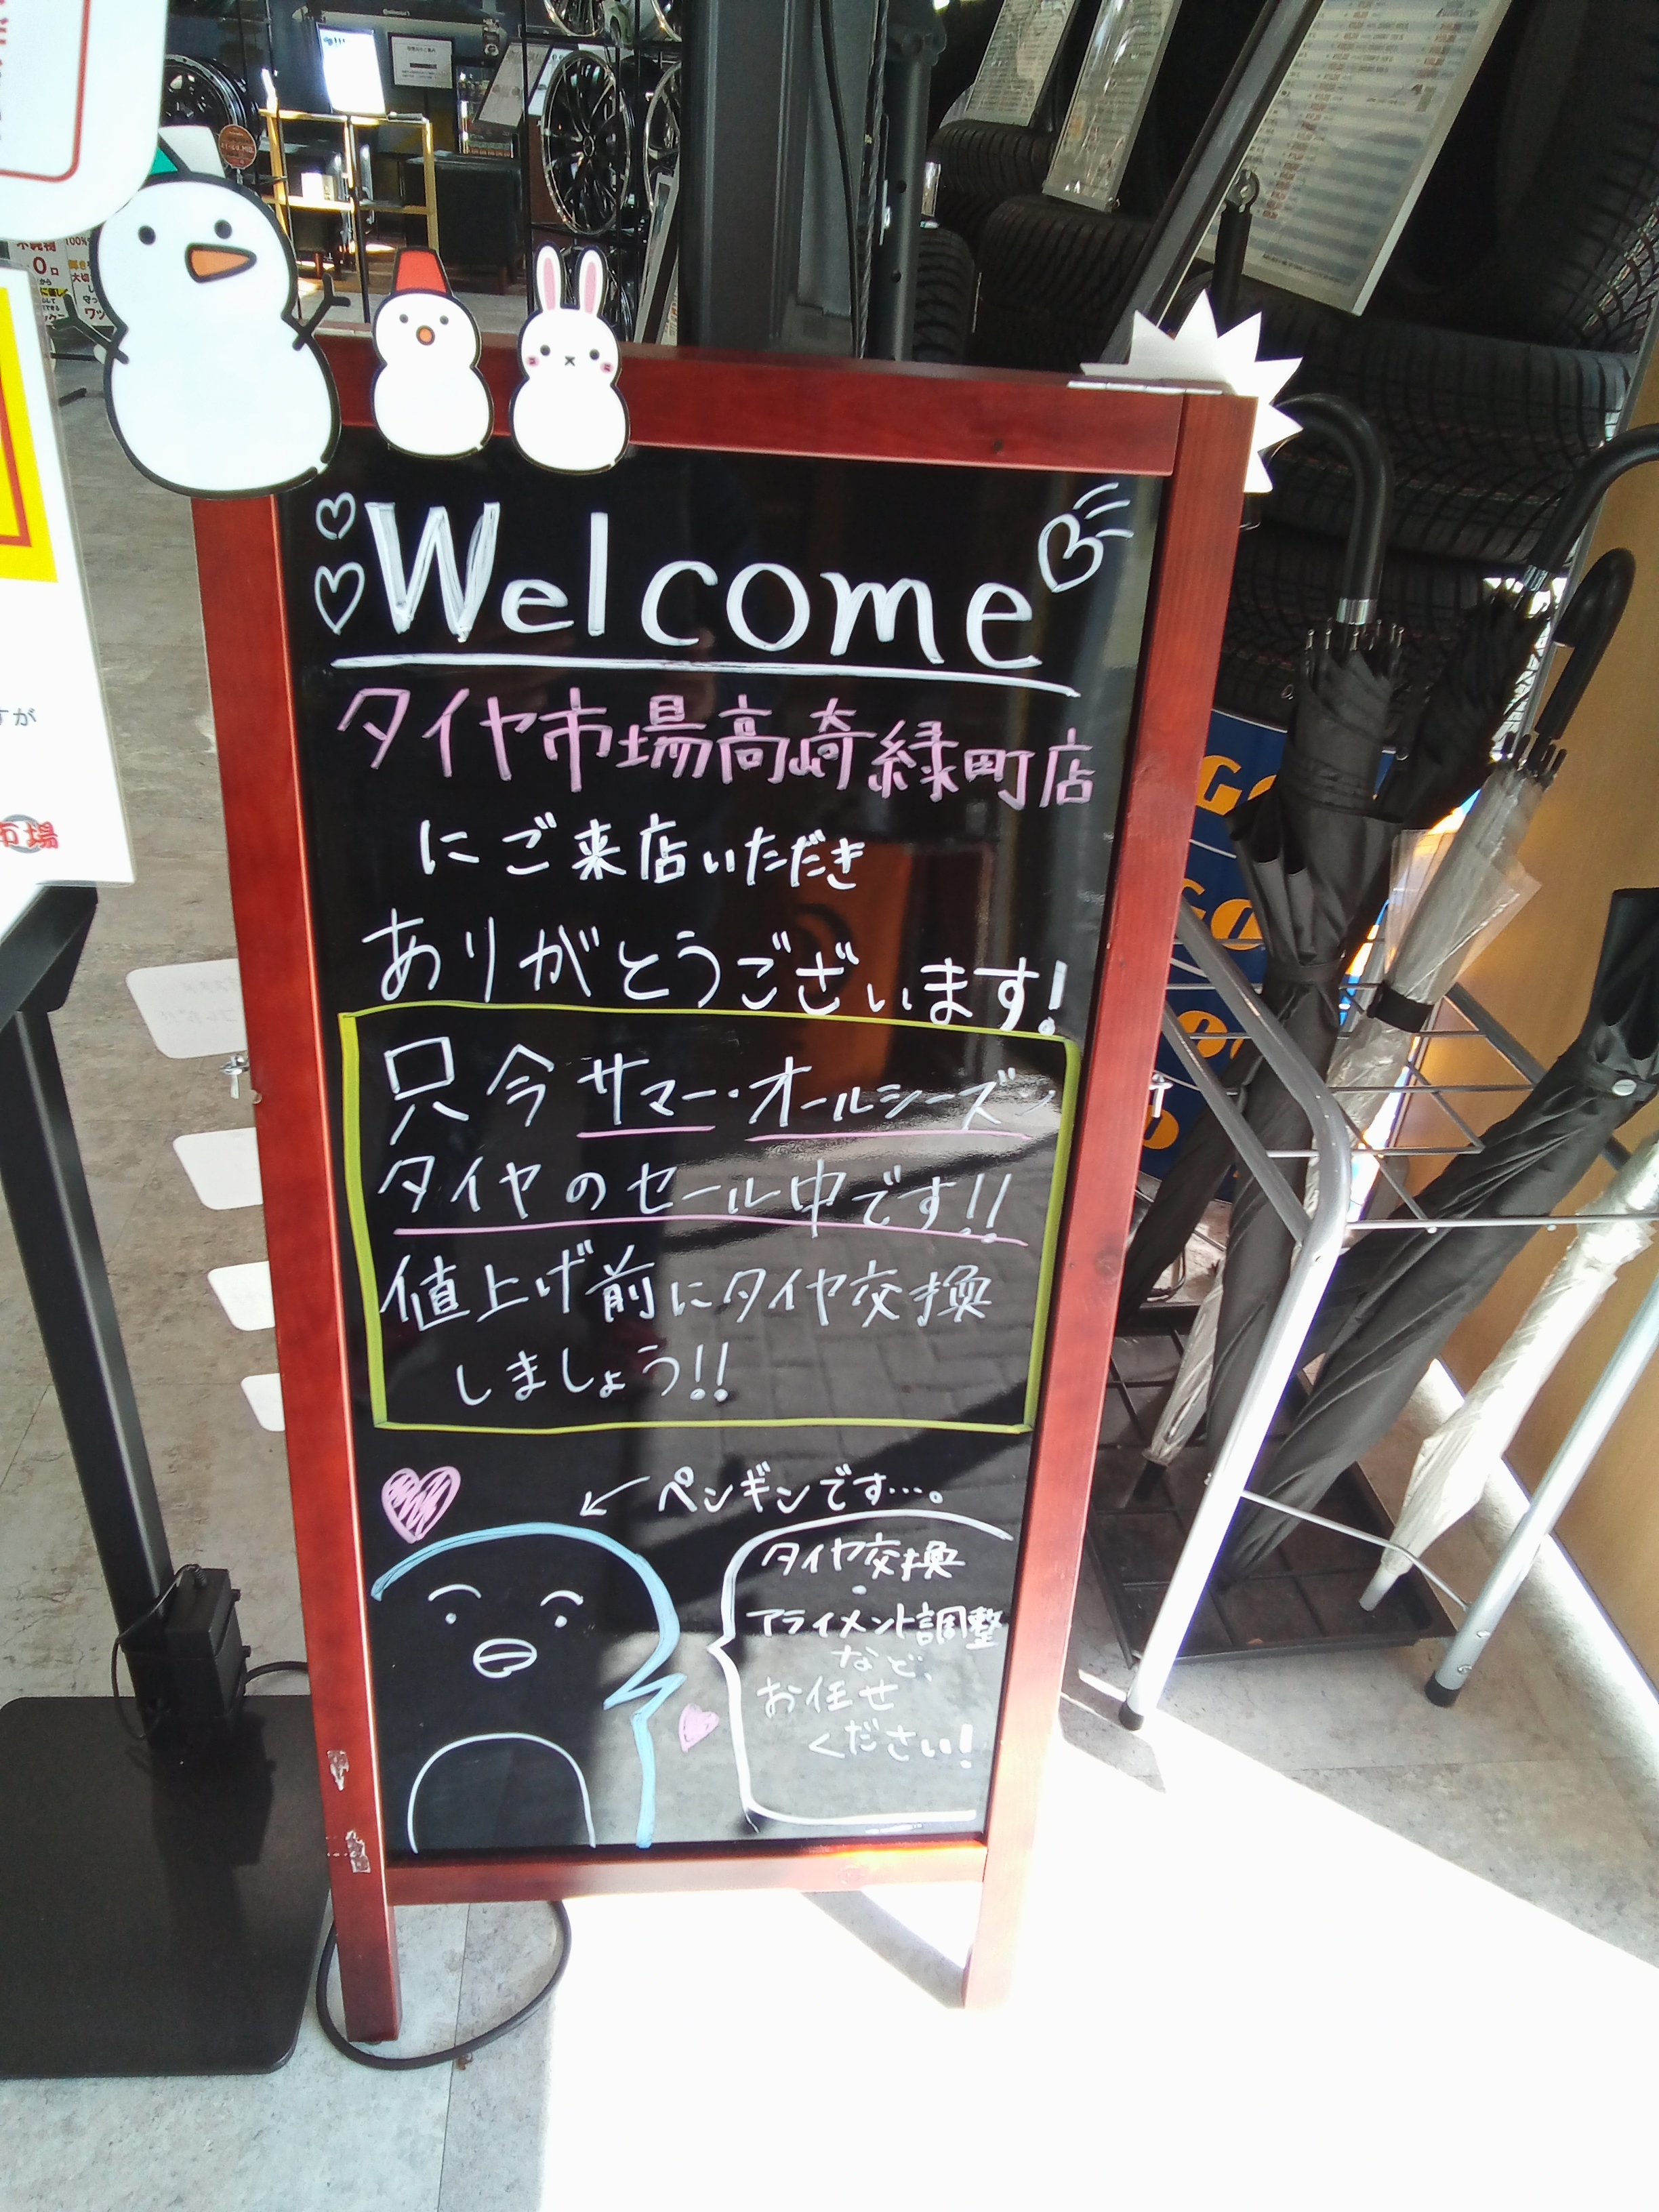 Welcome
タイヤ市場高崎緑町店
にご来店いただき
ありがとうございます!
只今サマー・オールシーズン
タイヤのセール中です!!
値上げ前にタイヤ交換
しましょう!!
←ペンギンです…。
タイヤ交換
・
アライメント調整
など、
お任せ
ください!
すが
市場